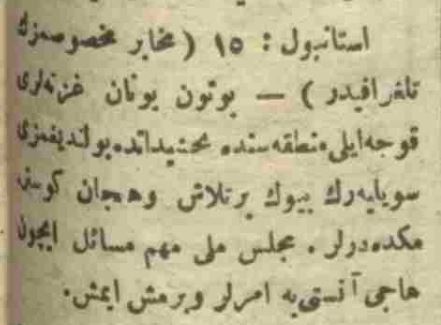 استانبول : ١٥ ( مخابر مخصوصمزك
تلغرافيدر ) — بوتون يونان غزتەلری
قوجه‌ایلی منطقه‌سنده تحشیداتده بولندیغمزی
سویلیه‌رك بیوك بر تلاش وهیجان كوستر
مكده‌درلر . مجلس ملی مهم مسائل ایچون
هاجی آنستی‌یه امرلر ویرمش ایمش.